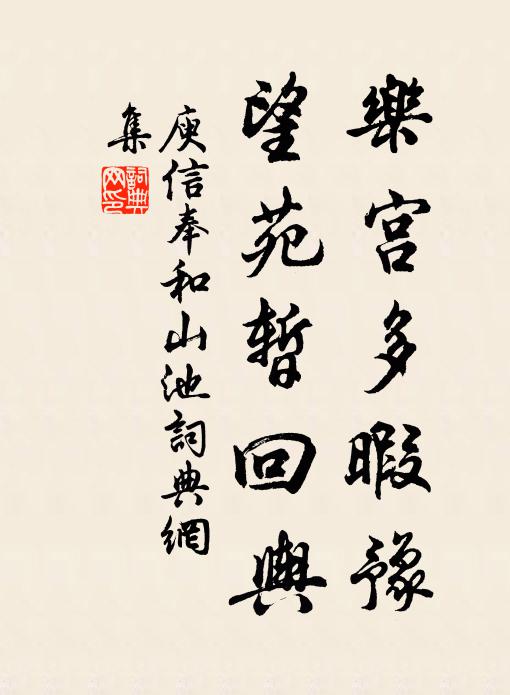 樂宮多暇豫
望苑暫回輿
庾信奉和山池詞典網
集
詞典
网印